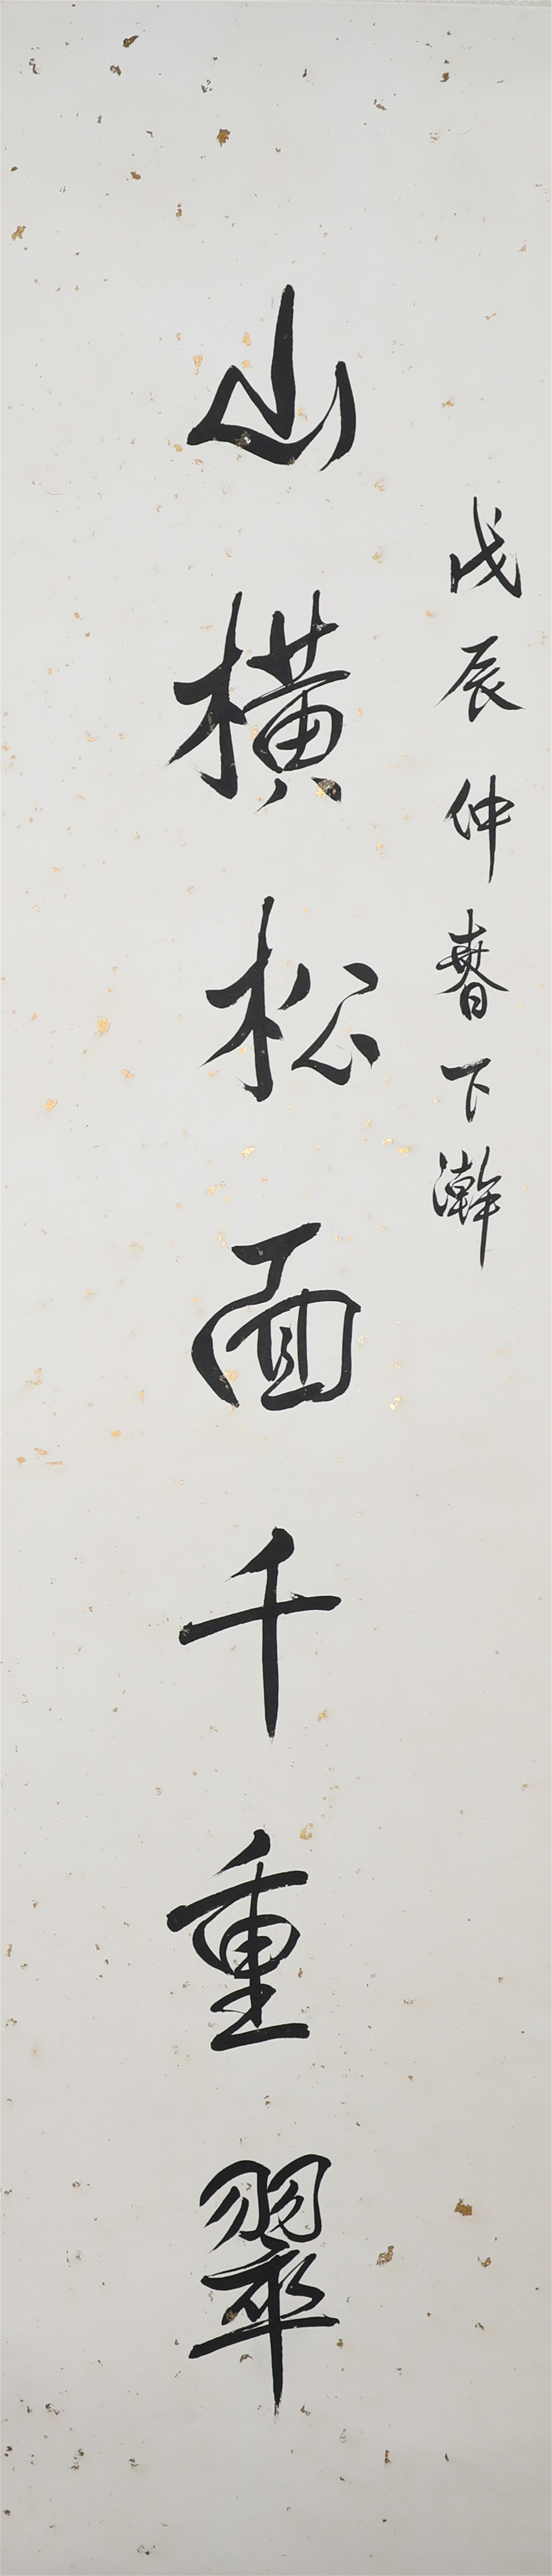 戊辰仲春下澣
山橫松面千重翠